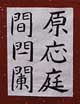 原応庭
間闌